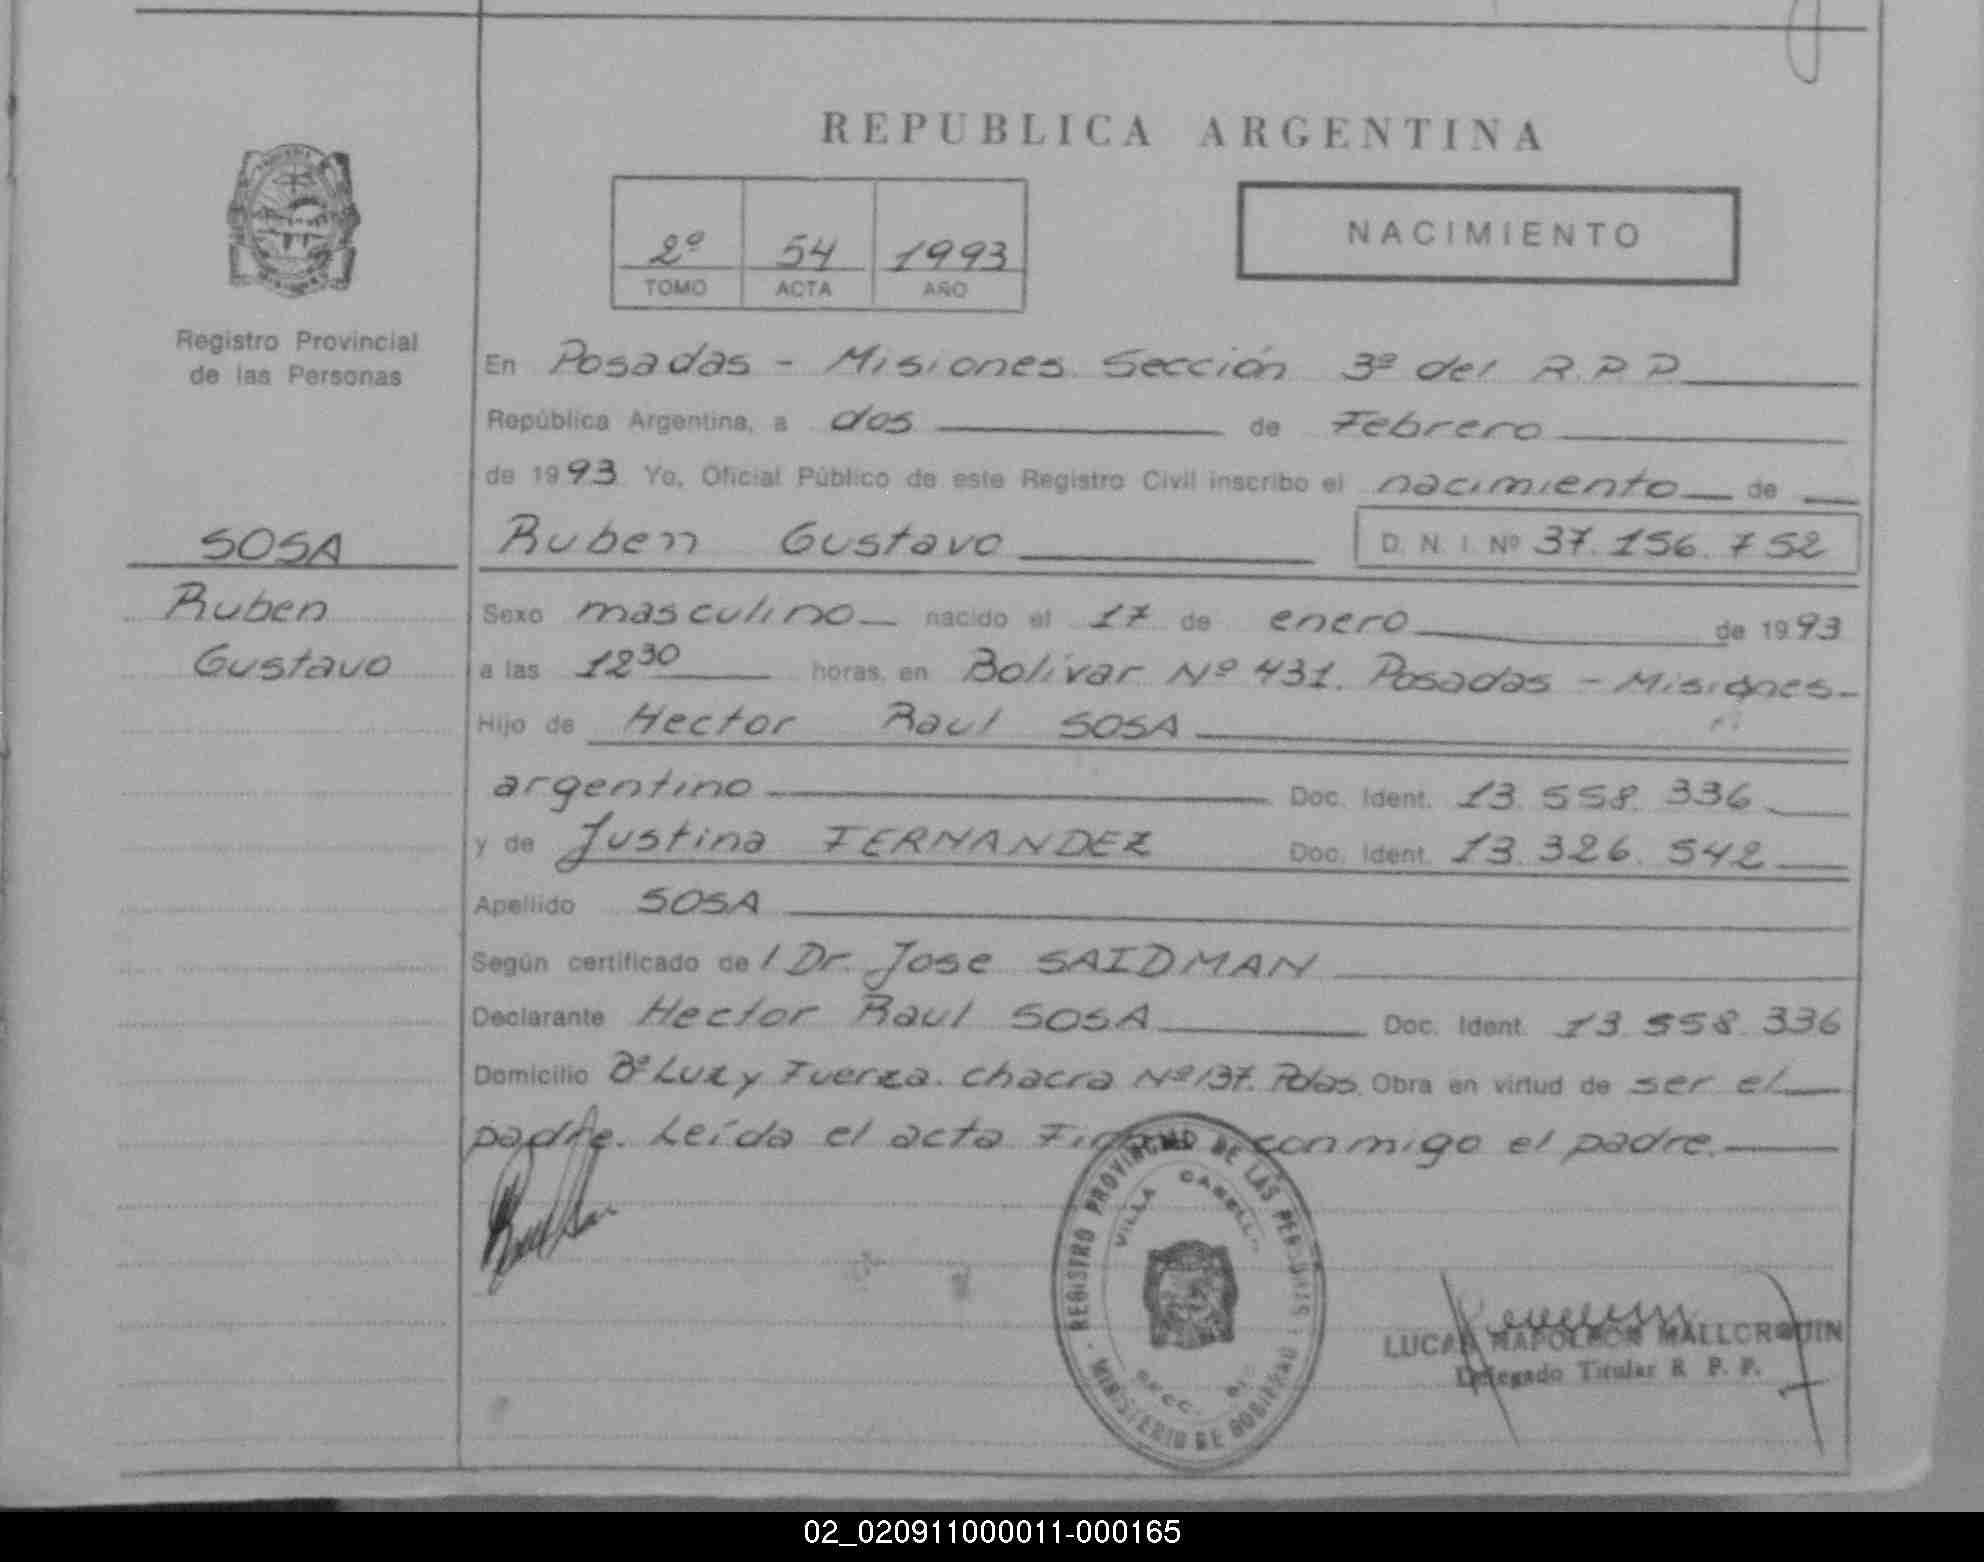 REPUBLICA ARGENTINA
2º 54 1993
TOMO ACTA AÑO
NACIMIENTO
Registro Provincial
de las Personas
En Posadas - Misiones. Sección 3ª del R.P.P.
República Argentina, a dos de Febrero
de 1993 Yo, Oficial Público de este Registro Civil inscribo el nacimiento de
SOSA
Ruben
Gustavo
Ruben Gustavo D. N. I. Nº 37.156.752
Sexo masculino nacido el 17 de enero de 1993
a las 12³⁰ horas, en Bolívar Nº 431. Posadas - Misiones-
Hijo de Hector Raul SOSA
argentino Doc. Ident. 13.558.336
y de Justina FERNANDEZ Doc. Ident. 13.326.542
Apellido SOSA
Según certificado de l Dr. Jose SAIDMAN
Declarante Hector Raul SOSA Doc. Ident. 13.558.336
Domicilio Bº Luz y Fuerza. chacra Nº 137. Pdas. Obra en virtud de ser el
padre. Leída el acta conmigo el padre.
REGISTRO PROVINCIAL DE LAS PERSONAS
VILLA CABELLO
SECC.
MINISTERIO DE GOBIERNO
LUCAS NAPOLEON MALLORQUIN
Delegado Titular R. P. P.
02_020911000011-000165